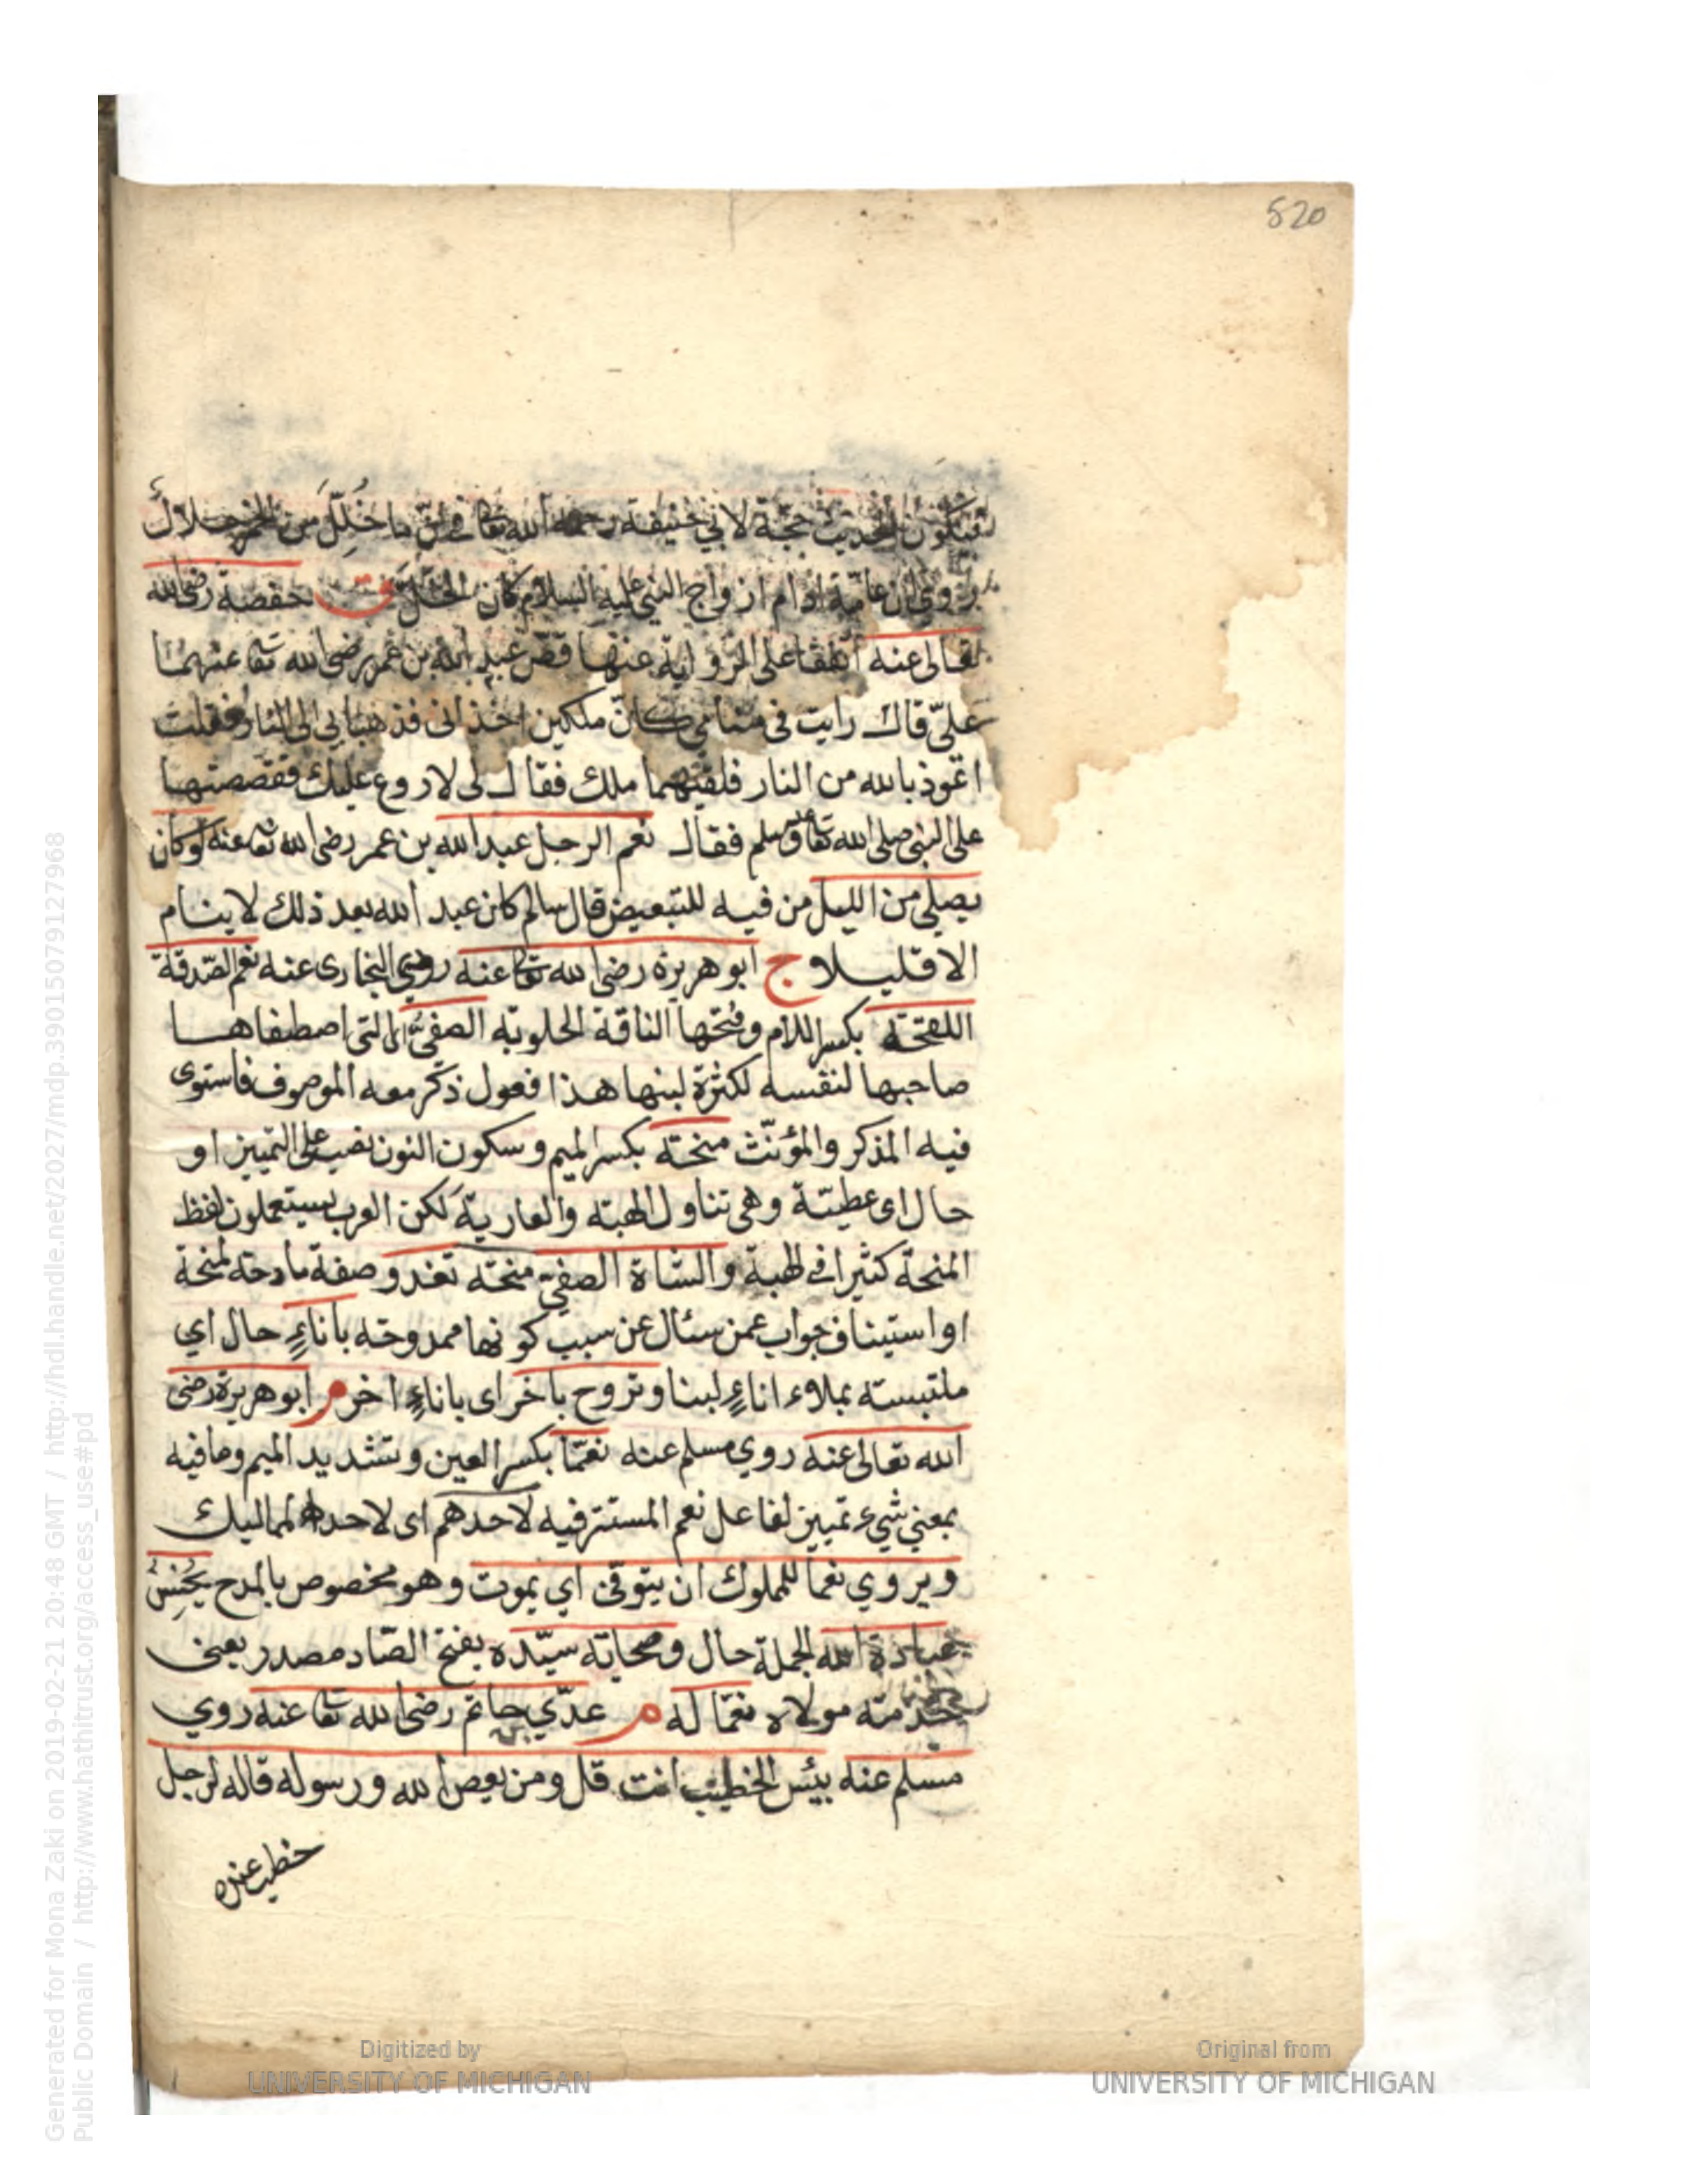 520
فيكون الحديث حجة لابي حنيفة رحمه الله تعا في انّ ما خُلِّلَ من الخمر حلالٌ
روي ان عامّة ادام ازواج النبي عليه السلام كان الخلّ ق حفصة رضي الله
تعالى عنه اتفقا على الرواية عنها فقصّ عبد الله بن عمر رضي الله تعا عنهما
عليّ قال رايت في منامي كانّ ملكين اخذاني فذهبا بي الى النار فقلت
اعوذ بالله من النار فلقيهما ملك فقال لى لا روع عليك فقصصتها
على النبي صلى الله تعا وسلم فقال نعم الرجل عبد الله بن عمر رضى الله تعا عنه لو كان
يصلي من الليل من فيه للتبعيض قال سالم كان عبد الله بعد ذلك لا ينام
الا قليلا ج ابو هريرة رضى الله تعا عنه روي البخارى عنه نعم الصّدقة
اللقحة بكسر اللام وفتحها الناقة الحلوبة الصفيّ اى التى اصطفاها
صاحبها لنفسه لكثرة لبنها هذا فعول ذكر معه الموصوف فاستوى
فيه المذكر والمؤنّث منحة بكسر الميم وسكون النون نصب على التمييز او
حال اى عطيّة وهى تناول الهبة والعارية لكن العرب يستعملون لفظ
المنحة كثيرا في الهبة والشاة الصفيّ منحة تغدو صفة مادحة لمنحة
او استيناف جواب عمن سئال عن سبب كونها ممدوحة باناءٍ حال اي
ملتبسة بملاء اناءٍ لبنا وتروح باخر اى باناءٍ اخر م ابو هريرة رضى
الله تعالى عنه روي مسلم عنه نعمّا بكسر العين وتشديد الميم وما فيه
بمعنى شيء تمييز لفاعل نعم المستتر فيه لاحدهم اى لاحد المماليك
ويروي نعما للملوك ان يتوفى اي يموت وهو مخصوص بالمدح يُحْسِنُ
عبادة الله الجملة حال وصحابة سيّده بفتح الصّاد مصدر بعنى
خدمة مولاه نعمّا له م عدّي حاتم رضى الله تعا عنه روي
مسلم عنه بيئس الخطيب انت قل ومن يعص الله ورسوله قاله لرجل
خطب عنده
Generated for Mona Zaki on 2019-02-21 20:48 GMT / http://hdl.handle.net/2027/mdp.39015079127968
Public Domain / http://www.hathitrust.org/access_use#pd
Digitized by
UNIVERSITY OF MICHIGAN
Original from
UNIVERSITY OF MICHIGAN